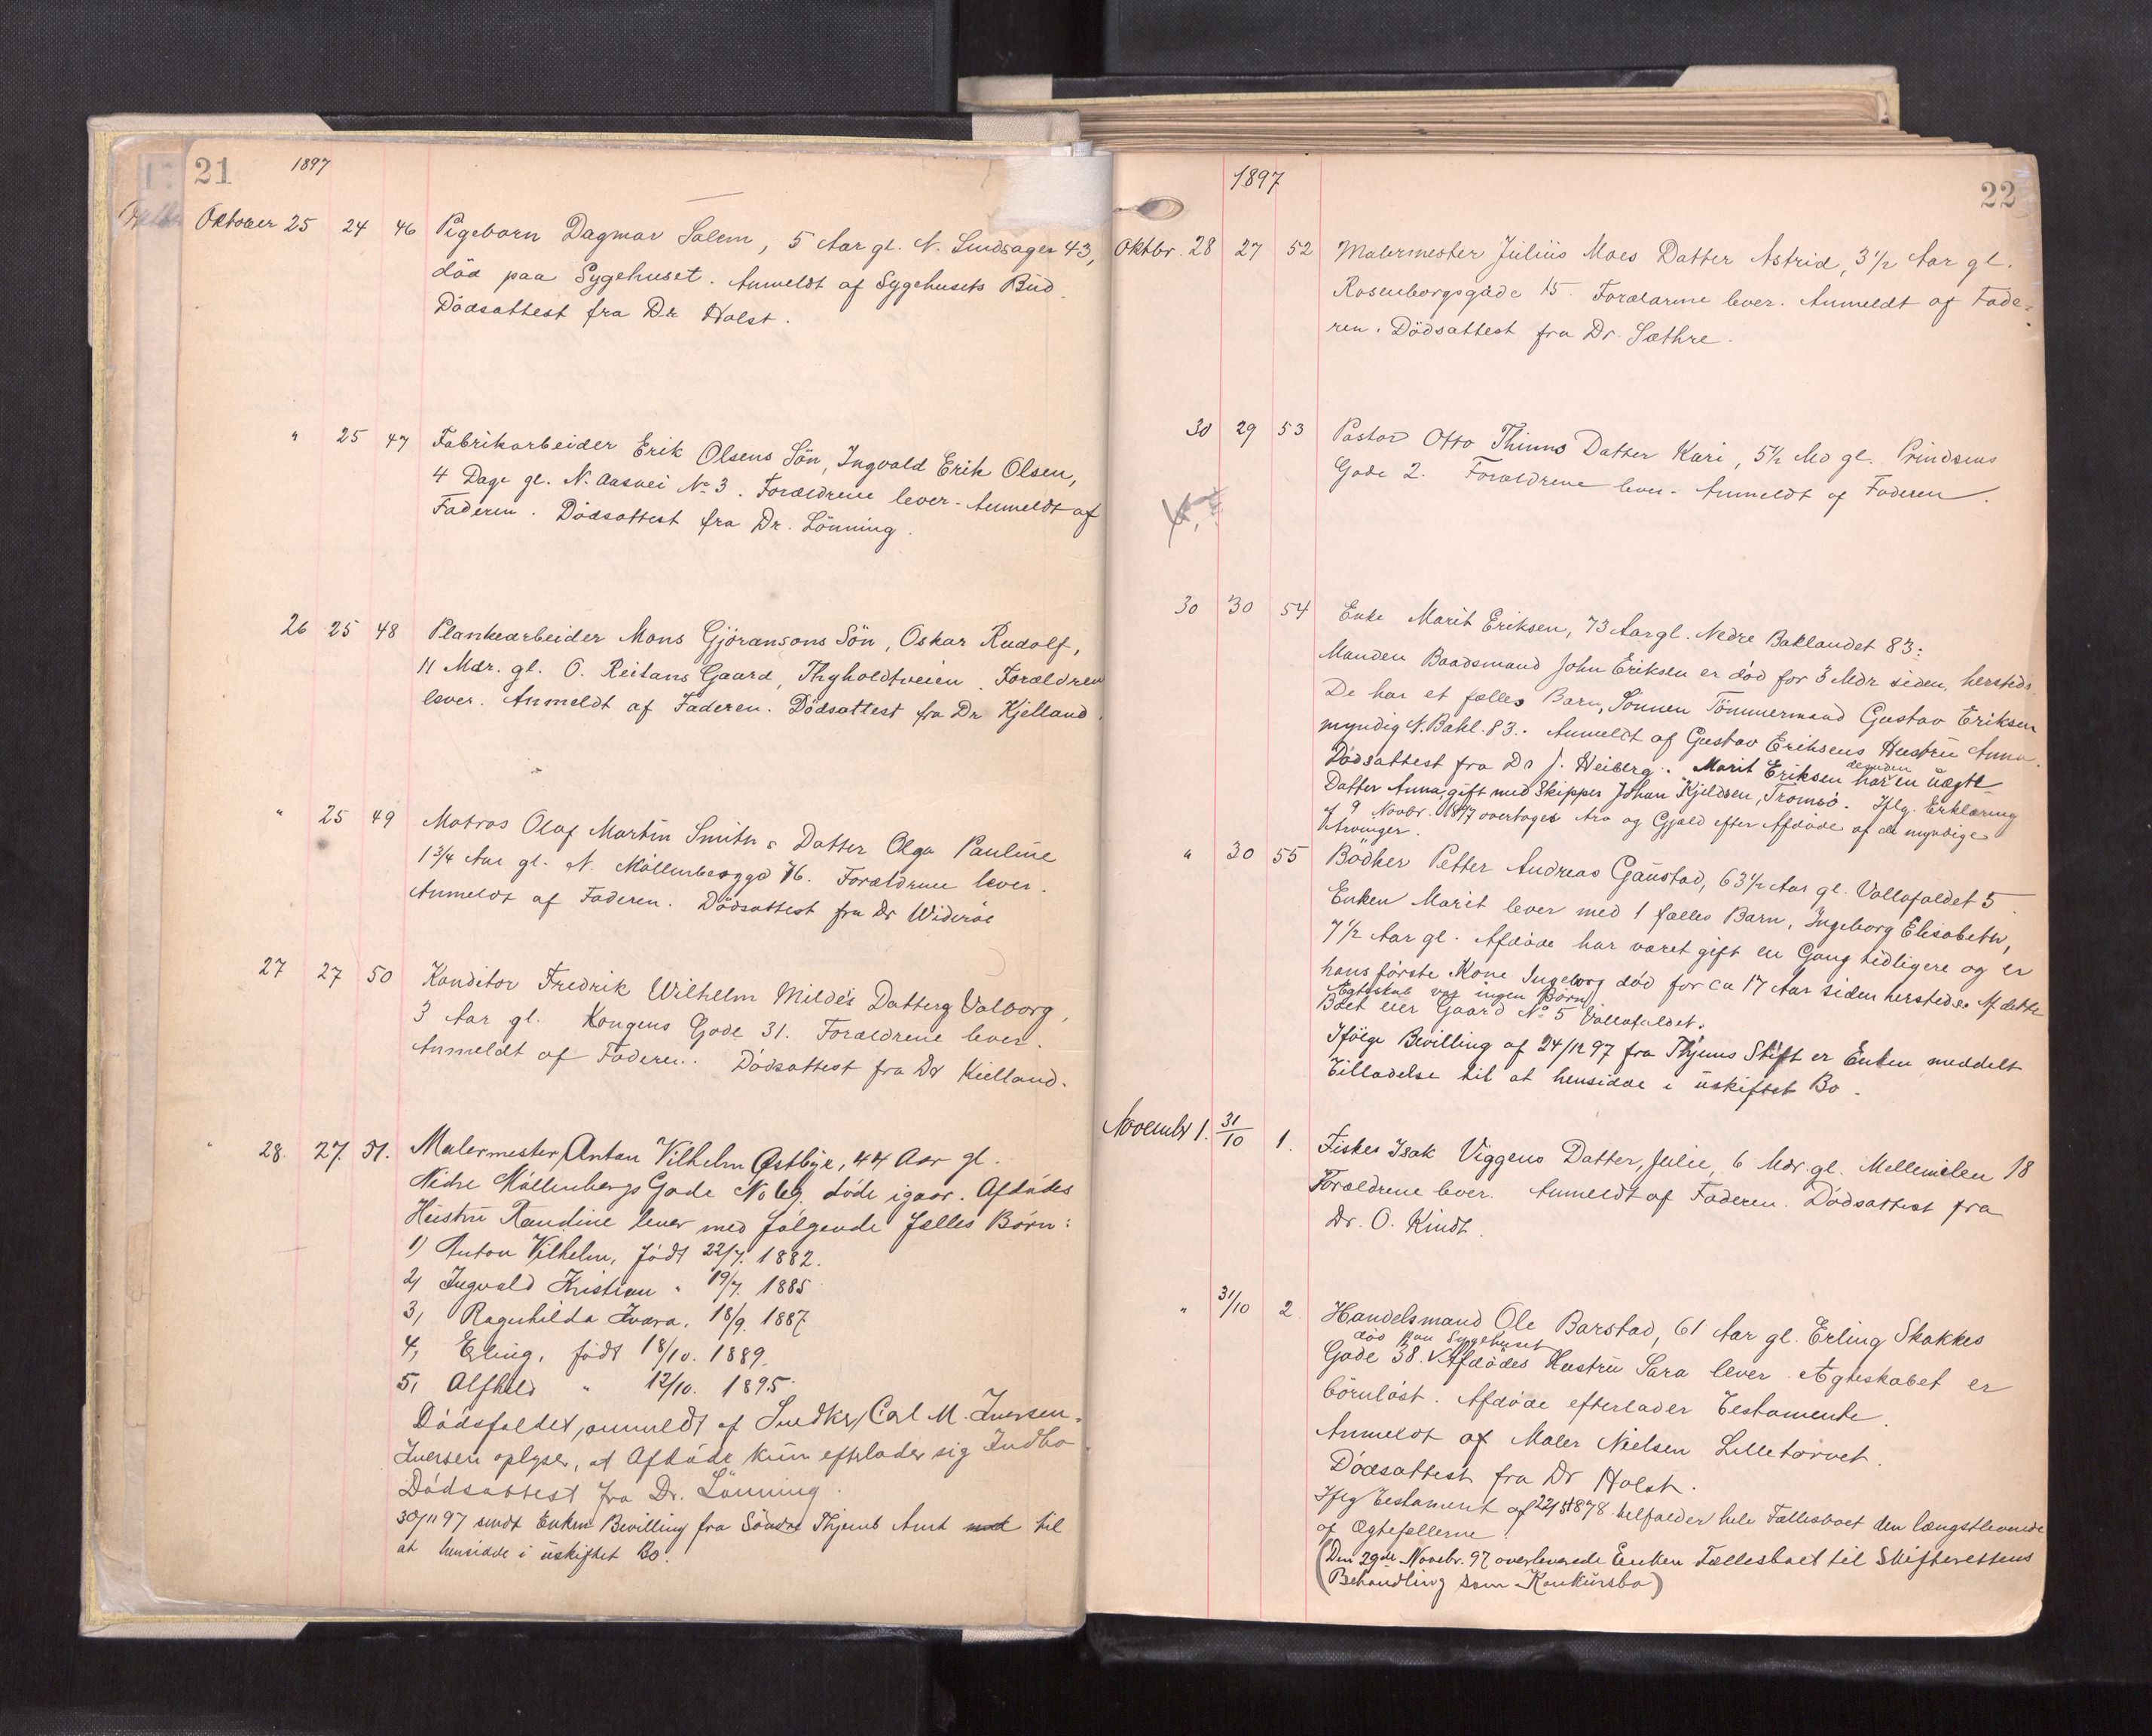 21 1897
Oktober 25 24 46 Pigebarn Dagmar Salem, 5 Aar gl. N. Lindsager 43,
död paa Sygehuset. Anmeldt af Sygehusets Bud.
Dödsattest fra Dr Holst.
" 25 47 Fabrikarbeider Erik Olsens Sön, Ingvald Erik Olsen,
4 Dage gl. N. Aasvei No 3. Forældrene lever. Anmeldt af
Faderen. Dödsattest fra Dr. Lönning.
26 25 48 Plankearbeider Mons Gjöransons Sön, Oskar Rudolf,
11 Mdr. gl. O. Reitans Gaard, Thyholdtveien. Forældren
lever. Anmeldt af Faderen. Dödsattest fra Dr Kjelland.
" 25 49 Matros Olaf Martin Smiths Datter Olga Pauline
1 3/4 Aar gl. N. Möllenbergsgd 76. Forældrene lever.
Anmeldt af Faderen. Dödsattest fra Dr Wideröe
27 27 50 Konditor Fredrik Wilhelm Milde's Datter Valborg,
3 Aar gl. Kongens Gade 31. Forældrene lever.
Anmeldt af Faderen. Dödsattest fra Dr Kielland.
28. 27. 51. Malermester Anton Vilhelm Østbye, 44 Aar gl.
Nedre Möllenbergs Gade No 69. döde igaar. Afdödes
Hustru Randine lever med fölgende fælles Börn:
1) Anton Vilhelm, födt 22/7. 1882.
2, Ingvald Kristian " 19/7. 1885
3, Ragnhilda Ivara, 18/9. 1887
4, Erling, födt 18/10. 1889.
5, Alfhild " 12/10. 1895.
Dödsfaldet anmeldt af Snedker Carl M. Iversen.
Iversen oplyser, at Afdöde kun efterlader sig Indbo.
Dödsattest fra Dr. Lönning.
30/11 97 sendt Enken Bevilling fra Söndre Thjems Amt til
at hensidde i uskiftet Bo.
1897 22
Oktbr. 28 27 52 Malermester Julius Moes Datter Astrid, 3 1/2 Aar gl.
Rosenborgsgade 15. Forældrene lever. Anmeldt af Fade-
ren. Dödsattest fra Dr. Sæthre.
30 29 53 Pastor Otto Thinns Datter Kari, 5 1/2 Md gl. Prindsens
Gade 2. Forældrene lever. Anmeldt af Faderen.
30 30 54 Enke Marit Eriksen, 73 Aar gl. Nedre Baklandet 83:
Manden Baadsmand John Eriksen er död for 3 Mdr siden, hersteds.
De har et fælles Barn, Sönnen Tömmermand Gustav Eriksen
myndig N. Bakl. 83. Anmeldt af Gustav Eriksens Hustru Anna.
Dödsattest fra Dr J. Heiberg. Marit Eriksen har desuden en uægte
Datter Anna, gift med Skipper Johan Kjeldsen, Tromsö. Iflg. Erklæring
af 9 Novbr. 1897 overtages Arv og Gjæld efter Afdöde af de myndige
Arvinger.
" 30 55 Bödker Petter Andreas Gaustad, 63 1/2 Aar gl. Vollafaldet 5.
Enken Marit lever med 1 fælles Barn, Ingeborg Elisabeth,
7 1/2 Aar gl. Afdöde har været gift en Gang tidligere og er
hans förste Kone Ingeborg död for ca 17 Aar siden hersteds. Af dette
Ægteskab var ingen Börn.
Boet eier Gaard No 5 Vollafaldet.
Ifölge Bevilling af 24/12 97 fra Thjems Stift er Enken meddelt
Tilladelse til at hensidde i uskiftet Bo.
November 1. 31/10 1. Fisker Isak Viggens Datter, Julie, 6 Mdr. gl. Mellemilen 18
Forældrene lever. Anmeldt af Faderen. Dödsattest fra
Dr. O. Kindt.
" 31/10 2 Handelsmand Ole Barstad, 61 Aar gl. Erling Skakkes
död paa Sygehuset
Gade 38. Afdödes Hustru Sara lever. Ægteskabet er
börnlöst. Afdöde efterlader Testamente.
Anmeldt af Maler Nielsen Lilletorvet.
Dödsattest fra Dr Holst.
Iflg Testament af 22/5 1878 tilfalder hele Fællesboet den længstlevende
af Ægtefællerne.
(Den 29de Novbr. 97 overleverede Enken Fællesboet til Skifterettens
Behandling som Konkursbo)